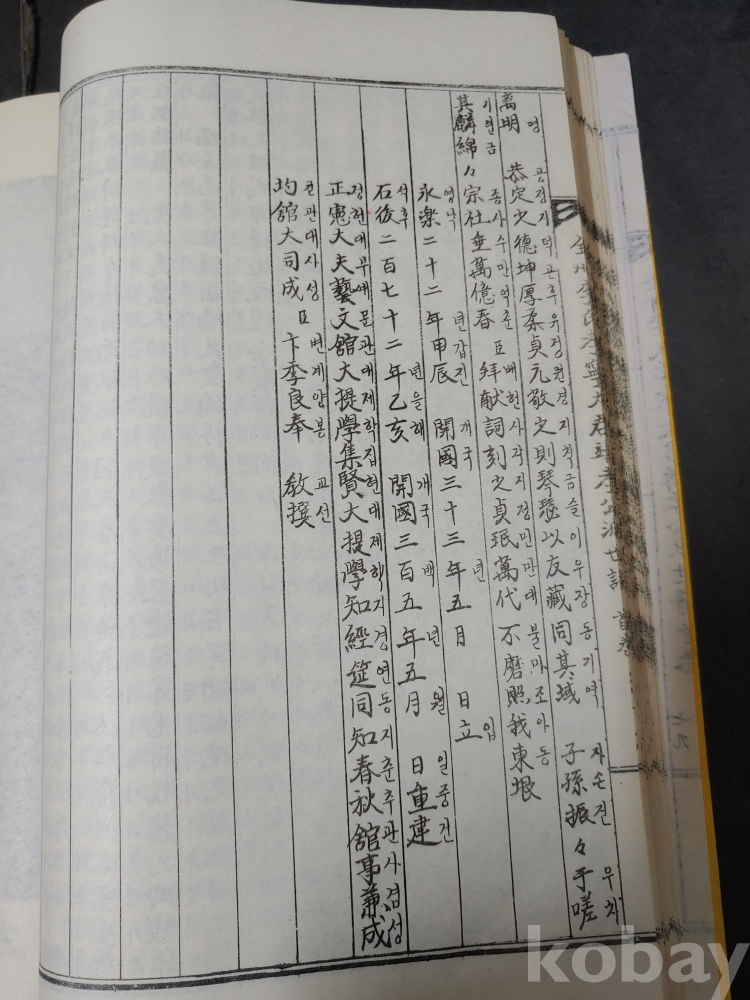 全州李氏孝寧大君靖孝公派世譜 首卷
명 공정지덕곤후유정원경지칙금슬이우장동기역 자손진 우차
离明 恭定之德坤厚柔貞元敬之則琴瑟以友藏同其域 子孫振々于嗟
기린금 종사수만억춘 배헌사각지정민만대불마조아동
其麟綿々宗社垂萬億春 臣拜献詞刻之貞珉萬代不磨照我東垠
영낙 년갑진 개국 년 입
永楽二十二年甲辰 開國三十三年五月 日立
석후 년을해 개국 백 년 월 일중건
石後二百七十二年乙亥 開國三百五年五月 日重建
정헌대부예문관대제학집현대제학지경연동지춘추관사겸성
正憲大夫藝文舘大提學集賢大提學知經筵同知春秋舘事兼成
균관대사성 변계양봉 교선
均舘大司成臣卞季良奉 教撰
kobay